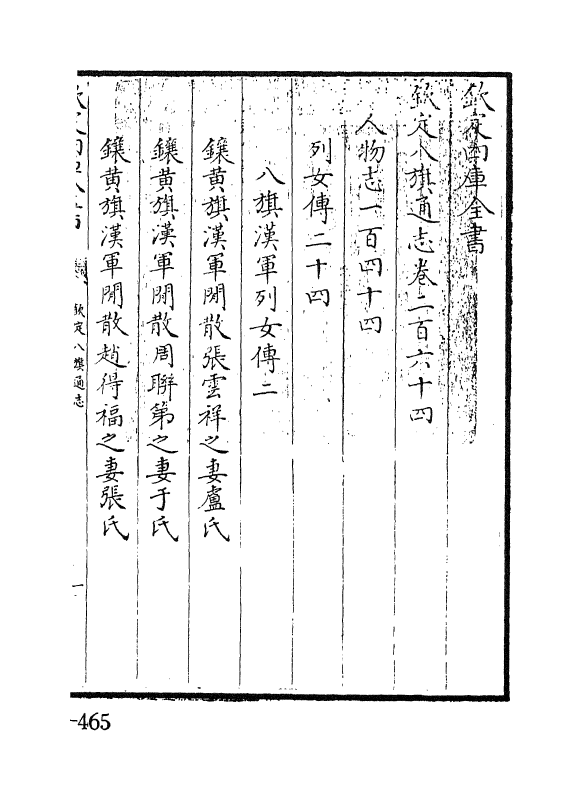 欽定四庫全書
欽定八旗通志卷二百六十四
人物志一百四十四
列女傳二十四
八旗漢軍列女傳二
鑲黃旗漢軍閒散張雲祥之妻盧氏
鑲黃旗漢軍閒散周聯第之妻于氏
鑲黃旗漢軍閒散趙得福之妻張氏
欽定八旗通志
一
-465